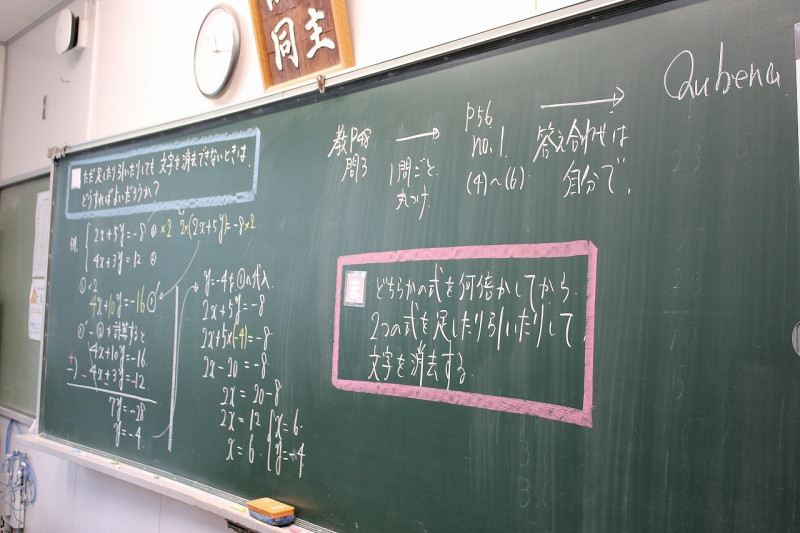 同 主
ただ足したり引いたりしても 文字を消去できないときは、
どうすればよいだろうか？
例 { 2x+5y=-8 ① ×2 2×(2x+5y)=-8×2
4x+3y=12 ②
①×2
4x+10y=-16 ①'
①'-②を計算すると
4x+10y=-16
-) -4x+3y=-12
7y=-28
y=-4
y=-4を①へ代入
2x+5y=-8
2x+5×(-4)=-8
2x-20=-8
2x=20-8
2x=12
x=6
{ x=6
y=-4
教P48
問3
→
1問ごと
丸つけ
P56
no.1.
(4)~(6)
→
答え合わせは
自分で。
Qubena
ま
どちらかの式を何倍かしてから、
2つの式を足したり引いたりして、
文字を消去する。